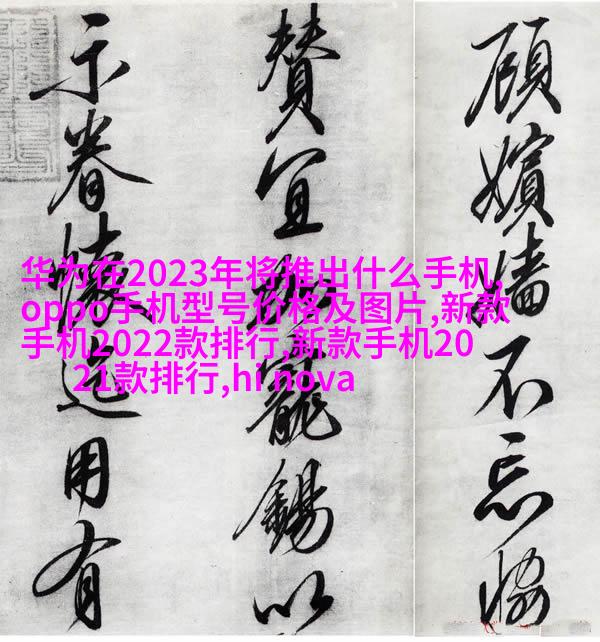 顧嬪嬙不忘恊
賛宜寵錫以
示眷懷用有
华为在2023年将推出什么手机,
oppo手机型号价格及图片,新款
手机2022款排行,新款手机20
21款排行,hi nova